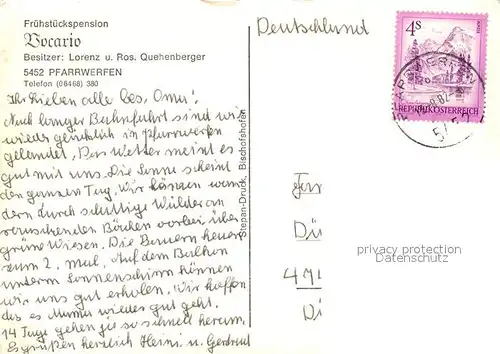 Frühstückspension
Vocario
Besitzer: Lorenz u. Ros. Quehenberger
5452 PFARRWERFEN
Telefon (06468) 380
Ihr Lieben alle bes. Oma!
Nach langer Bahnfahrt sind wir
wieder glücklich in Pfarrwerfen
gelandet. Das Wetter meint es
gut mit uns. Die Sonne scheint
den ganzen Tag. Wir können wan
dern durch schattige Wälder an
rauschenden Bächen vorbei, über
grüne Wiesen. Die Bauern heuen
zum 2. mal. Auf dem Balkon
unterm Sonnenschirm können
wir uns gut erholen. Wir hoffen
das es Mama wieder gut geht.
14 Tage gehen ja so schnell herum.
Es grüßen herzlich Heini u. Gertrud
Stepan-Druck, Bischofshofen
Deutschland
4S
REPUBLIK ÖSTERREICH
PFARRWERFEN
5452
Fam
Dü
4
Di
privacy protection
Datenschutz